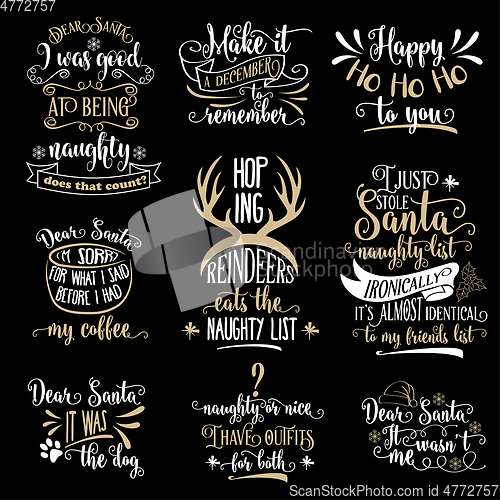 4772757
DEAR SANTA
I was good
AT BEING
naughty
does that count?
Make it
A DECEMBER
to
remember
Happy
HO HO HO
to you
Dear Santa
I'M SORRY
FOR WHAT I SAID
BEFORE I HAD
my coffee
HOP
ING
REINDEERS
eats the
NAUGHTY LIST
I JUST
STOLE
Santa
naughty list
IRONICALLY
IT'S ALMOST IDENTICAL
to my friends list
Dear Santa
IT WAS
the dog
?
naughty or nice
I HAVE OUTFITS
for both
Dear Santa
It wasn't
me
StockphotosHandinHand
© Handinhand / Stockfresh